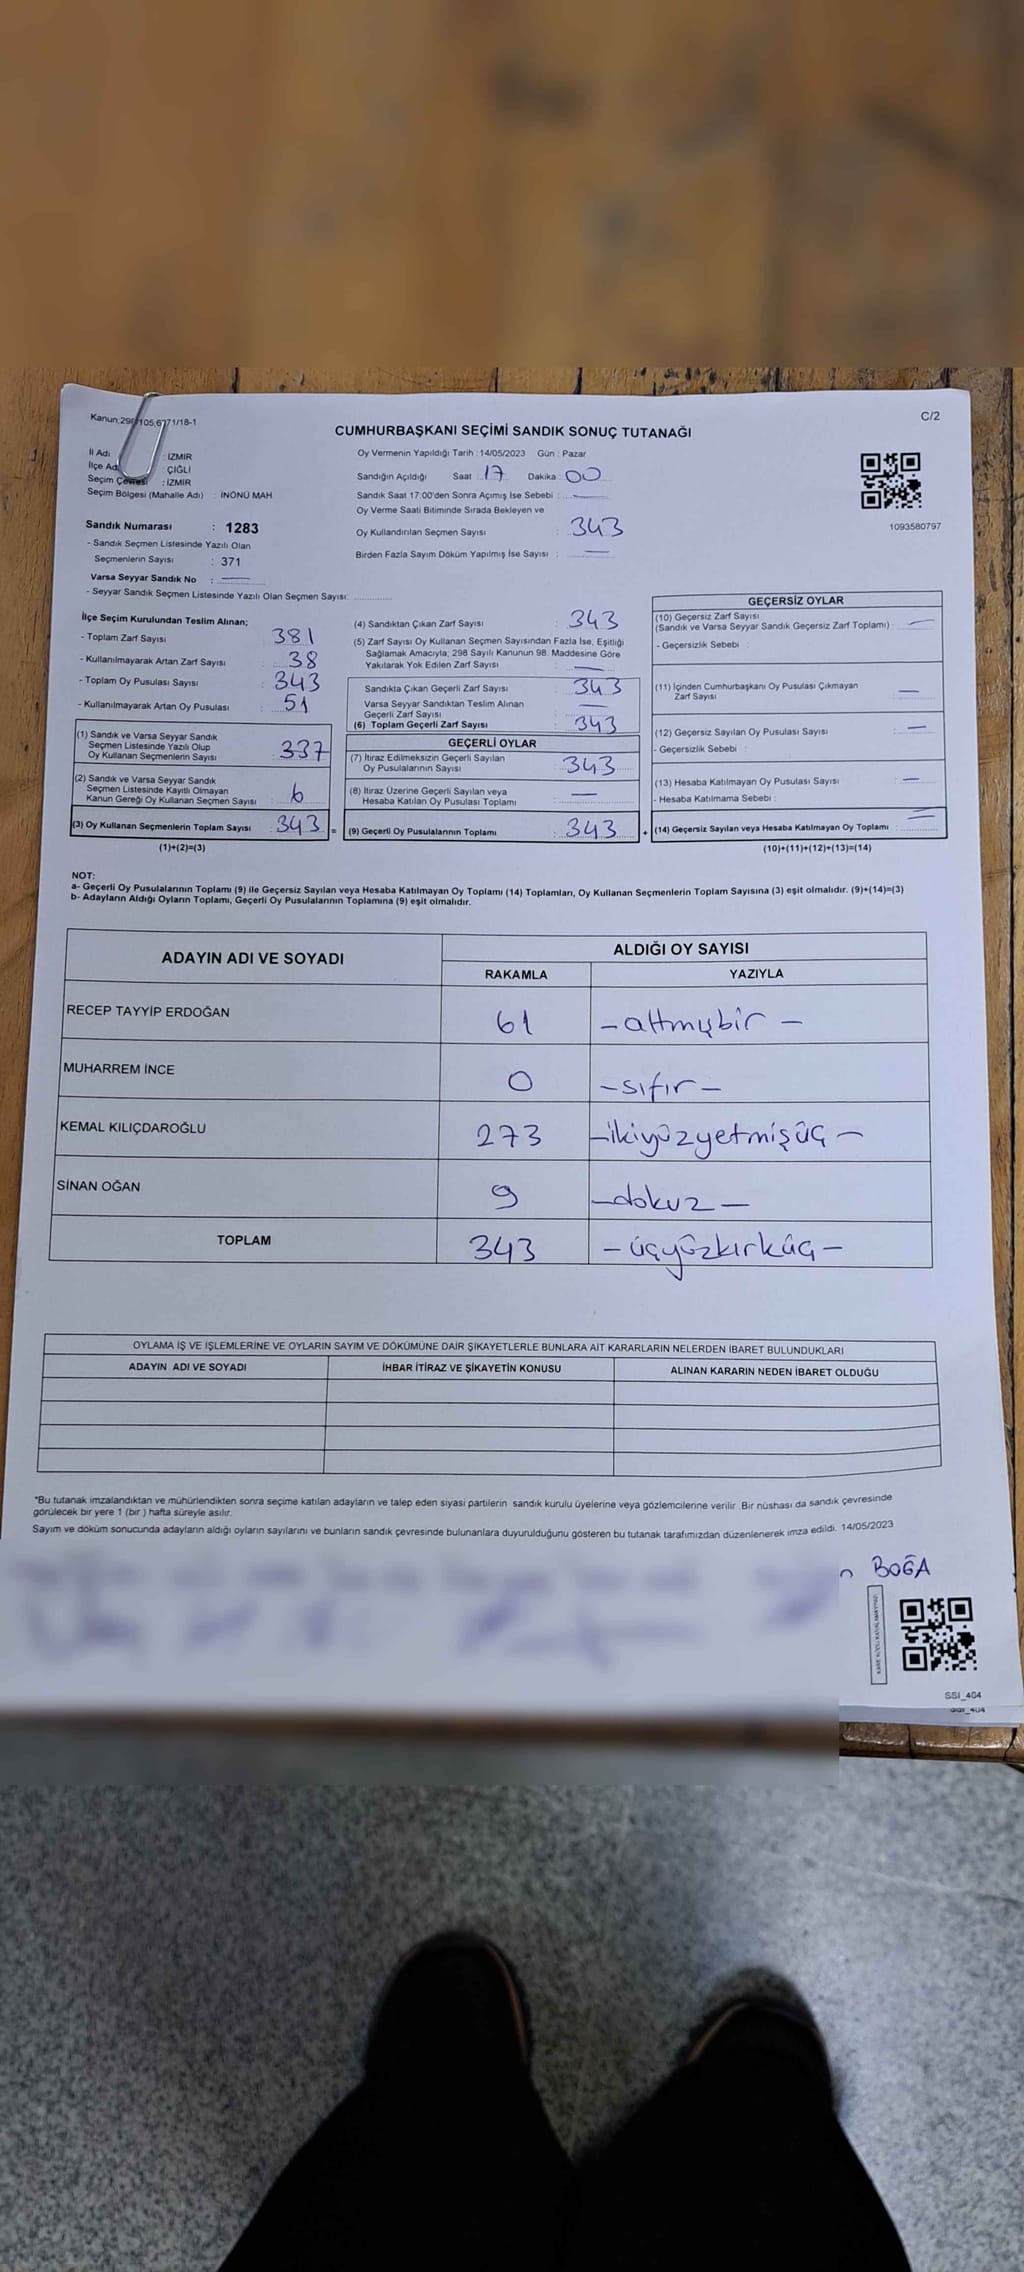 Kanun;298 105;6271/18-1
C/2
CUMHURBAŞKANI SEÇİMİ SANDIK SONUÇ TUTANAĞI
İl Adı : İZMİR
İlçe Adı : ÇİĞLİ
Seçim Çevresi : İZMİR
Seçim Bölgesi (Mahalle Adı) : İNÖNÜ MAH
Oy Vermenin Yapıldığı Tarih : 14/05/2023 Gün : Pazar
Sandığın Açıldığı Saat : 17 Dakika : 00
Sandık Saat 17:00'den Sonra Açımış İse Sebebi : —
Oy Verme Saati Bitiminde Sırada Bekleyen ve
Oy Kullandırılan Seçmen Sayısı : 343
Birden Fazla Sayım Döküm Yapılmış İse Sayısı : —
1093580797
Sandık Numarası : 1283
- Sandık Seçmen Listesinde Yazılı Olan
Seçmenlerin Sayısı : 371
Varsa Seyyar Sandık No : —
- Seyyar Sandık Seçmen Listesinde Yazılı Olan Seçmen Sayısı:
İlçe Seçim Kurulundan Teslim Alınan;
- Toplam Zarf Sayısı : 381
- Kullanılmayarak Artan Zarf Sayısı : 38
- Toplam Oy Pusulası Sayısı : 343
- Kullanılmayarak Artan Oy Pusulası : 51
(1) Sandık ve Varsa Seyyar Sandık
Seçmen Listesinde Yazılı Olup
Oy Kullanan Seçmenlerin Sayısı : 337
(2) Sandık ve Varsa Seyyar Sandık
Seçmen Listesinde Kayıtlı Olmayan
Kanun Gereği Oy Kullanan Seçmen Sayısı : 6
(3) Oy Kullanan Seçmenlerin Toplam Sayısı : 343 =
(1)+(2)=(3)
(4) Sandıktan Çıkan Zarf Sayısı : 343
(5) Zarf Sayısı Oy Kullanan Seçmen Sayısından Fazla İse, Eşitliği
Sağlamak Amacıyla, 298 Sayılı Kanunun 98. Maddesine Göre
Yakılarak Yok Edilen Zarf Sayısı : —
Sandıkta Çıkan Geçerli Zarf Sayısı : 343
Varsa Seyyar Sandıktan Teslim Alınan
Geçerli Zarf Sayısı : —
(6) Toplam Geçerli Zarf Sayısı : 343
GEÇERLİ OYLAR
(7) İtiraz Edilmeksizin Geçerli Sayılan
Oy Pusulalarının Sayısı : 343
(8) İtiraz Üzerine Geçerli Sayılan veya
Hesaba Katılan Oy Pusulası Toplamı : —
(9) Geçerli Oy Pusulalarının Toplamı : 343 +
GEÇERSİZ OYLAR
(10) Geçersiz Zarf Sayısı
(Sandık ve Varsa Seyyar Sandık Geçersiz Zarf Toplamı) : —
- Geçersizlik Sebebi :
(11) İçinden Cumhurbaşkanı Oy Pusulası Çıkmayan
Zarf Sayısı : —
(12) Geçersiz Sayılan Oy Pusulası Sayısı : —
- Geçersizlik Sebebi :
(13) Hesaba Katılmayan Oy Pusulası Sayısı : —
- Hesaba Katılmama Sebebi :
(14) Geçersiz Sayılan veya Hesaba Katılmayan Oy Toplamı : —
(10)+(11)+(12)+(13)=(14)
NOT:
a- Geçerli Oy Pusulalarının Toplamı (9) ile Geçersiz Sayılan veya Hesaba Katılmayan Oy Toplamı (14) Toplamları, Oy Kullanan Seçmenlerin Toplam Sayısına (3) eşit olmalıdır. (9)+(14)=(3)
b- Adayların Aldığı Oyların Toplamı, Geçerli Oy Pusulalarının Toplamına (9) eşit olmalıdır.
ADAYIN ADI VE SOYADI ALDIĞI OY SAYISI
RAKAMLA YAZIYLA
RECEP TAYYİP ERDOĞAN 61 – altmışbir –
MUHARREM İNCE 0 – sıfır –
KEMAL KILIÇDAROĞLU 273 – ikiyüzyetmişüç –
SİNAN OĞAN 9 – dokuz –
TOPLAM 343 – üçyüzkırküç –
OYLAMA İŞ VE İŞLEMLERİNE VE OYLARIN SAYIM VE DÖKÜMÜNE DAİR ŞİKAYETLERLE BUNLARA AİT KARARLARIN NELERDEN İBARET BULUNDUKLARI
ADAYIN ADI VE SOYADI İHBAR İTİRAZ VE ŞİKAYETİN KONUSU ALINAN KARARIN NEDEN İBARET OLDUĞU
*Bu tutanak imzalandıktan ve mühürlendikten sonra seçime katılan adayların ve talep eden siyasi partilerin sandık kurulu üyelerine veya gözlemcilerine verilir. Bir nüshası da sandık çevresinde
görülecek bir yere 1 (bir ) hafta süreyle asılır.
Sayım ve döküm sonucunda adayların aldığı oyların sayılarını ve bunların sandık çevresinde bulunanlara duyurulduğunu gösteren bu tutanak tarafımızdan düzenlenerek imza edildi. 14/05/2023
BOĞA
SSI_404